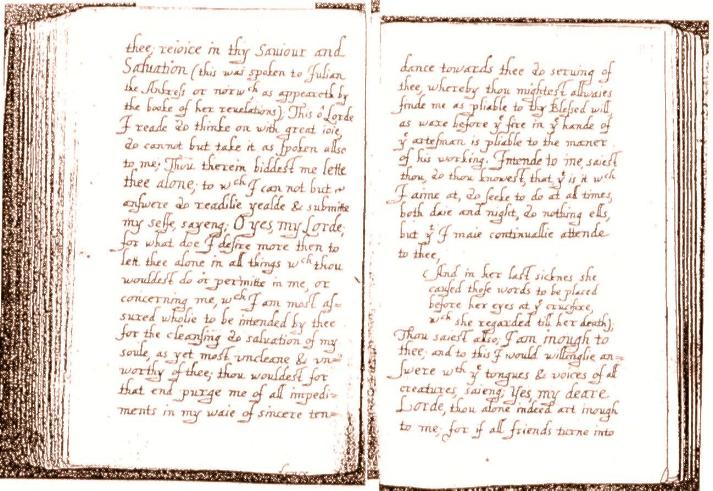 thee; reioice in thy Saviour and
Salvation (this was spoken to Julian
the Ankress of norwch as appeareth by
the booke of her revelations). This o Lorde
I reade & thinke on with great ioie,
& cannot but take it as spoken allso
to me; Thou therein biddest me lette
thee alone; to wch I can not but
answere & readilie yealde & submitte
my selfe, sayeng, O yes, my Lorde;
for what doe I desire more then to
lett thee alone in all things wch thou
wouldest do or permitte in me, or
concerning me, wch I am most as=
sured wholie to be intended by thee
for the cleansing & salvation of my
soule, as yet most uncleane & un=
worthy of thee; thou wouldest for
that end purge me of all impedi=
ments in my waie of sincere ten=
dance towards thee & serving of
thee, whereby thou mightest allwaies
finde me as pliable to thy Blessed will,
as waxe before ye fire in ye hande of
ye artesman is pliable to the maner
of his working. Intende to me, saiest
thou, & thou knowest, that yt is it wch
I aime at, & seeke to do at all times,
both daie and night, & nothing ells,
but yt I maie continuallie attende
to thee,
(And in her last sicknes she
caused those words to be placed
before her eyes at ye crucifixe,
wch she regarded till her death);
Thou saiest allso; I am inough to
thee; and to this I would willinglie an=
swere wth ye tongues & voices of all
creatures, saieng, Yes, my deare
Lorde, thou alone indeed art inough
to me; for if all friends turne into